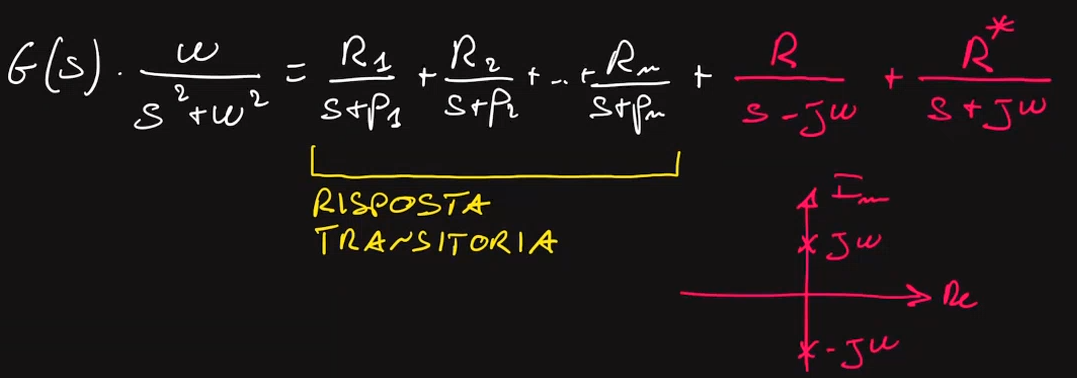 G(s) · ω/(s²+ω²) = R₁/(s+p₁) + R₂/(s+p₂) + ... + Rₙ/(s+pₙ) + R/(s-jω) + R*/(s+jω)
RISPOSTA
TRANSITORIA
Im
jω
Re
-jω